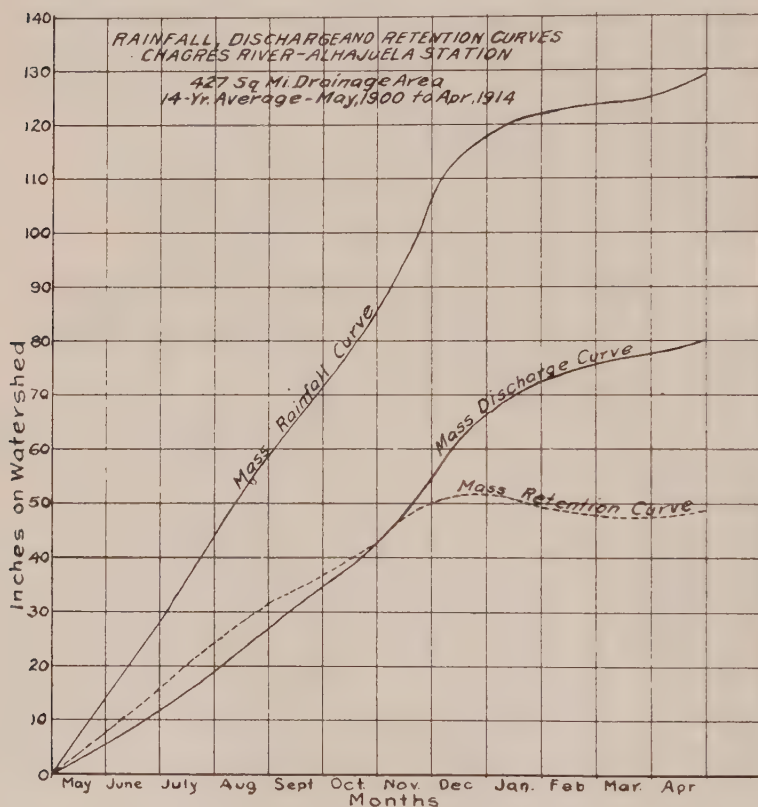 RAINFALL, DISCHARGE AND RETENTION CURVES
CHAGRES RIVER-ALHAJUELA STATION
427 Sq Mi. Drainage Area
14-Yr. Average-May, 1900 to Apr, 1914
140
130
120
110
100
90
80
70
60
50
40
30
20
10
0
Inches on Watershed
Mass Rainfall Curve
Mass Discharge Curve
Mass Retention Curve
May June July Aug Sept Oct. Nov. Dec Jan. Feb Mar. Apr
Months